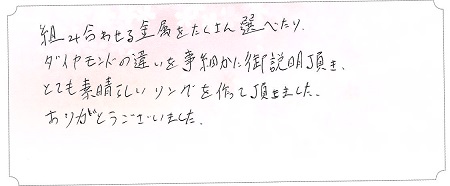 組み合わせる金属をたくさん選べたり、
ダイヤモンドの違いを事細かに御説明頂き、
とても素晴らしいリングを作って頂きました。
ありがとうございました。